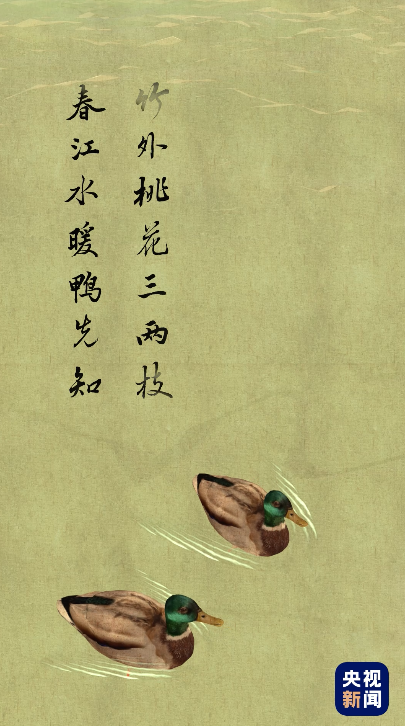 竹外桃花三两枝
春江水暖鸭先知
央视
新闻